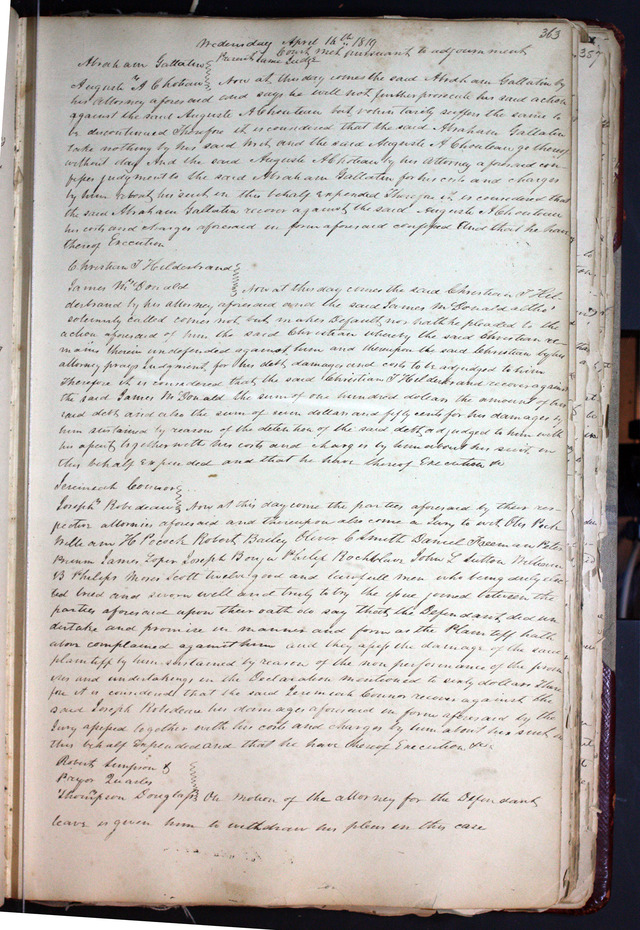 363
Wednesday April 14th 1819
Court met pursuant to adjournment
Present same Judge
Abraham Gallatin
vs
Auguste A Choteau } Now at this day comes the said Abraham Gallatin by
his Attorney aforesaid and says he will not further prosecute his said action
against the said Auguste A Chouteau but voluntarily suffers the same to
be discontinued Therefore it is considered that the said Abraham Gallatin
take nothing by his said writ and the said Auguste A Chouteau go thereof
without day And the said Auguste A Choteau by his Attorney aforesaid con
fesses judgment to the said Abraham Gallatin for his costs and charges
by him about his suit in this behalf expended Therefore it is considered that
the said Abraham Gallatin recover against the said Auguste A Choteau
his costs and charges aforesaid in form aforesaid confessed And that he have
thereof Execution
Christian T Hilderbrand
vs
James McDonald } Now at this day comes the said Christian T Hil-
derbrand by his attorney aforesaid and the said James McDonald altho'
solemnly called comes not but makes Default, nor hath he pleaded to the
action aforesaid of him the said Christian whereby the said Christian re-
mains therein undefended against him and thereupon the said Christian by his
attorney prays Judgment for his debt, damages and costs to be adjudged to him
Therefore it is considered that the said Christian T Hilderbrand recover against
the said James McDonald the sum of one hundred dollars the amount of his
said debt and also the sum of seven dollars and fifty cents for his damages by
him sustained by reason of the detention of the said debt, adjudged to him with
his assent, together with his costs and charges by him about his suit in
this behalf Expended and that he have thereof Execution &c
Jeremiah Connor
vs
Joseph Robedeau } Now at this day come the parties aforesaid by their res-
pective attornies aforesaid and thereupon also come a Jury to wit, Otis Peck
William H Pocock Robert Bailey Oliver C Smith Daniel Freeman Peter
Primm James Loper Joseph Bouju Philip Rochblave John L Sutton William
B Phelips Moses Scott twelve good and lawfull men who being duly elec
ted tried and sworn well and truly to try the issue joined between the
parties aforesaid upon their oath do say that, the Defendant, did un
dertake and promise in manner and form as the Plaintiff hath
above complained against him and they assess the damage of the said
plaintiff by him sustained by reason of the non performance of the prom
ises and undertakings in the Declaration mentioned to sixty dollars There
fore it is considered that the said Jeremiah Connor recover against the
said Joseph Robedeau his damages aforesaid in form aforesaid by the
Jury assessed together with his costs and charges by him about his suit in
this behalf Expended and that he have thereof Execution &c
Robert Simpson &
Payor Quarles
vs
Thompson Douglass } On motion of the attorney for the Defendant
leave is given him to withdraw his pleas in this case
357